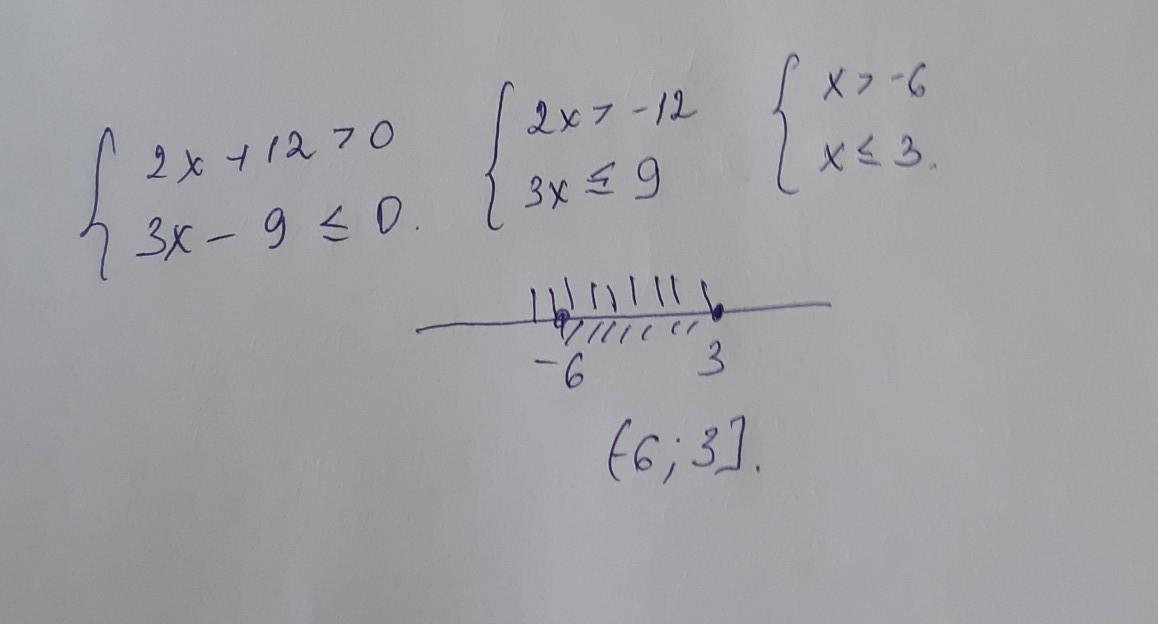 { 2x + 12 > 0
3x - 9 ≤ 0.
{ 2x > -12
3x ≤ 9
{ x > -6
x ≤ 3.
-6 3
(-6; 3].